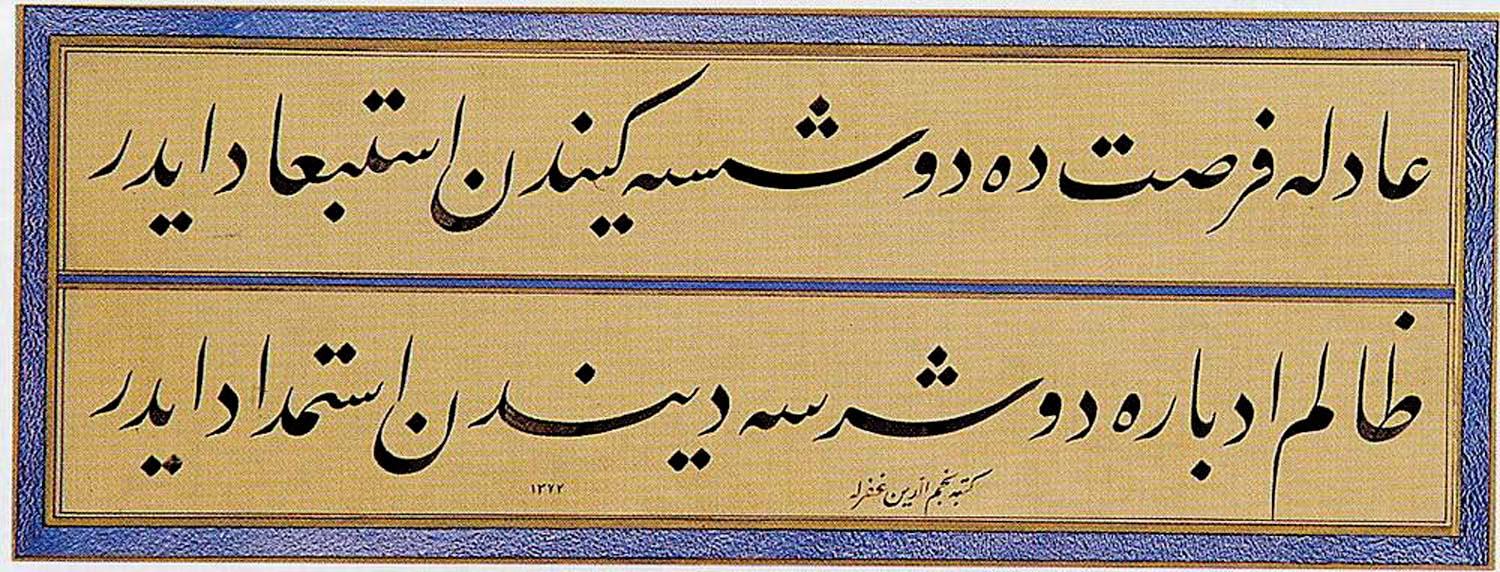 عادله فرصت ده دوشسه كیندن استبعاد ایدر
ظالم ادباره دوشرسه دیندن استمداد ایدر
كتبه نجم الدین غفرله ١٣٧٢